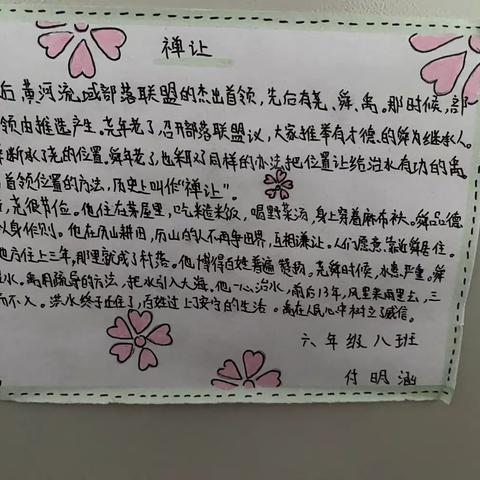 禅让
后,黄河流域部落联盟的杰出首领,先后有尧、舜、禹。那时候,部
领由推选产生。尧年老了,召开部落联盟议,大家推举有才德的舜为继承人。
继承了尧的位置。舜年老了,也采取了同样的办法把位置让给治水有功的禹
首领位置的方法,历史上叫作"禅让"。
,尧很节俭。他住在茅屋里,吃糙米饭,喝野菜汤,身上穿着麻布衣。舜品德
以身作则。他在历山耕田,历山的人不再争田界,互相谦让。人们愿意靠近舜居住。
地方住上三年,那里就成了村落。他博得百姓普遍赞扬。尧舜时候,水患严重。舜
水。禹用疏导的方法,把水引入大海。他一心治水,前后13年,风里来雨里去,三
而不入。洪水终于止住了,百姓过上了安宁的生活。禹在人民心中树立了威信。
六年级八班
付明涵